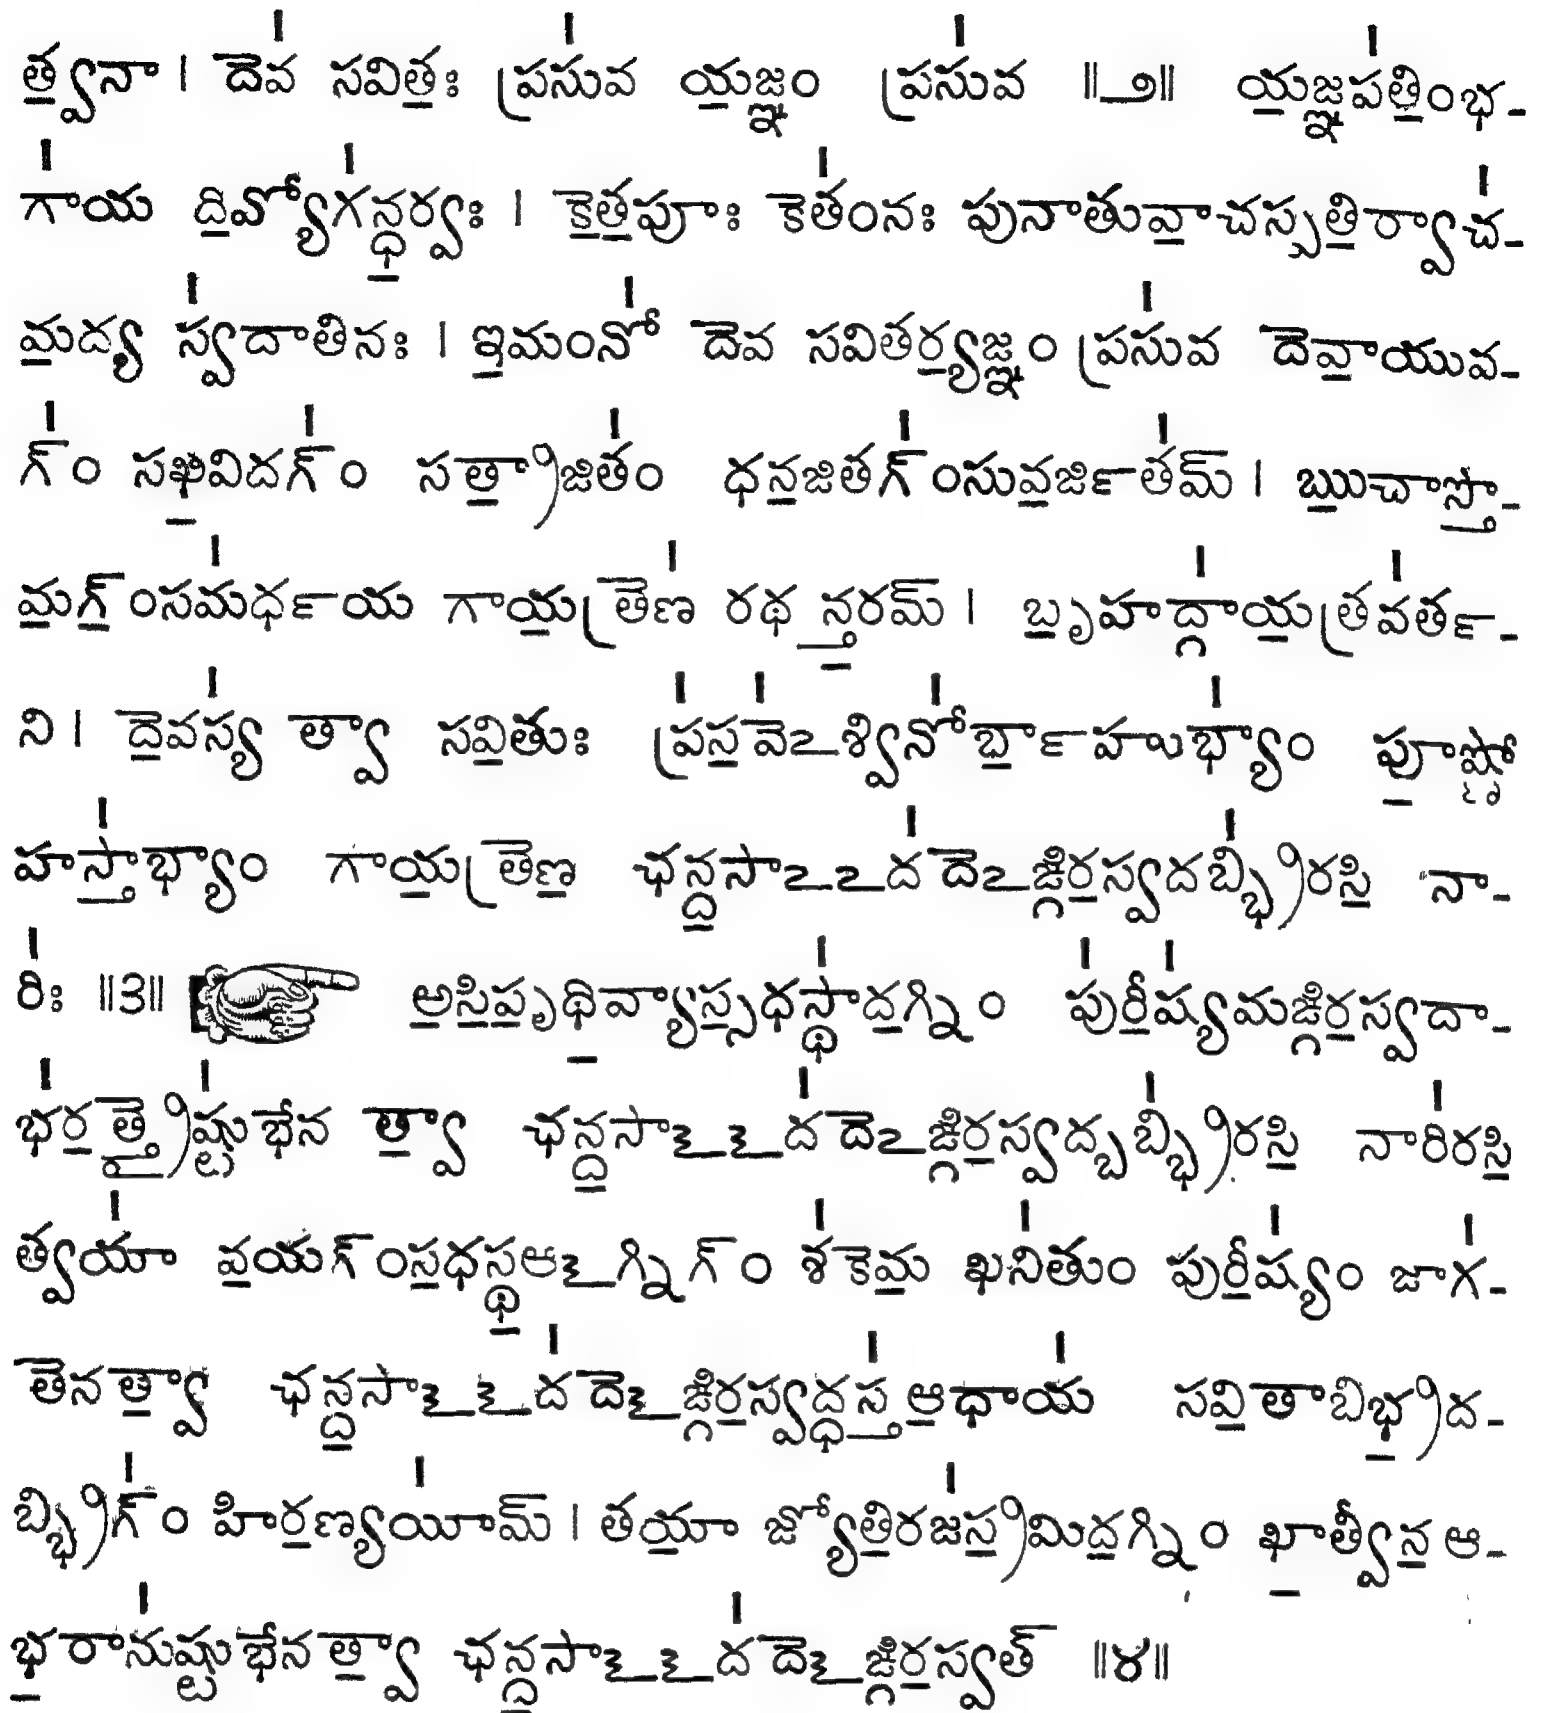 త్వ॒నా । దే॑వ సవిత॒ః ప్రసు॑వ య॒జ్ఞం ప్రసు॑వ ॥౨॥ య॒జ్ఞప॑తి॒ంభ-
గా॑య ది॒వ్యోగ॑న్ధ॒ర్వః । కే॒త॒పూః కేత॑ంనః పునాతువా॒చస్పతి॒ర్వాచ॑-
మ॒ద్య స్వ॑దాతినః । ఇ॒మంనో॑ దేవ సవితర్య॒జ్ఞం ప్రసు॑వ దేవా॒యువ-
గ్ం॑ సఖి॒విదగ్ం॑ సత్రా॒జిత॑ం ధన॒జితగ్ం॑సువ॒ర్జిత॑మ్ । ఋ॒చాస్తో-
మ॒గ్॒ంసమ॑ర్ధయ గాయ॒త్రేణ॑ రథన్త॒రమ్ । బృ॒హద్గా॑య॒త్రవ॑ర్త-
ని । దే॒వస్య॑ త్వా సవి॒తుః ప్ర॑స॒వే॑ఽశ్వినో॑ర్బా॒హుభ్యా॑ం పూ॒ష్ణో
హస్తా॑భ్యాం గాయ॒త్రేణ॒ ఛన్ద॒సాఽఽద॑దేఽఙ్గిర॒స్వదబ్భ్రి॑రసి॒ నా-
రిః॑ ॥౩॥ అ॒సి॒పృ॒థి॒వ్యాస్స॒ధస్థా॑ద॒గ్నిం పు॑రీ॒ష్య॑మఙ్గిర॒స్వదా-
భ॑ర॒త్రైష్టు॑భేన త్వా॒ ఛన్ద॒సాఽఽద॑దేఽఙ్గిర॒స్వద్బబ్భ్రి॑రసి॒ నారి॑రసి॒
త్వయా॑ వ॒యగ్ంస॒ధస్థ॒ఆఽగ్నిగ్ం శ॑కేమ॒ ఖని॑తుం పురీ॒ష్య॑ం జాగ॑-
తేనత్వా॒ ఛన్ద॒సాఽఽద॑దేఽఙ్గిర॒స్వద్ధస్త॑ ఆ॒ధాయ॑ సవి॒తాబిభ్ర॒ద-
బ్భ్రిగ్ం॑ హిర॒ణ్యయీ॑మ్ । తయా॒ జ్యోతి॒రజ॑స్ర॒మిద॒గ్నిం ఖా॒త్వీన॒ ఆ-
భ॒రాను॑ష్టుభేనత్వా॒ ఛన్ద॒సాఽఽద॑దేఽఙ్గిర॒స్వత్ ॥౪॥